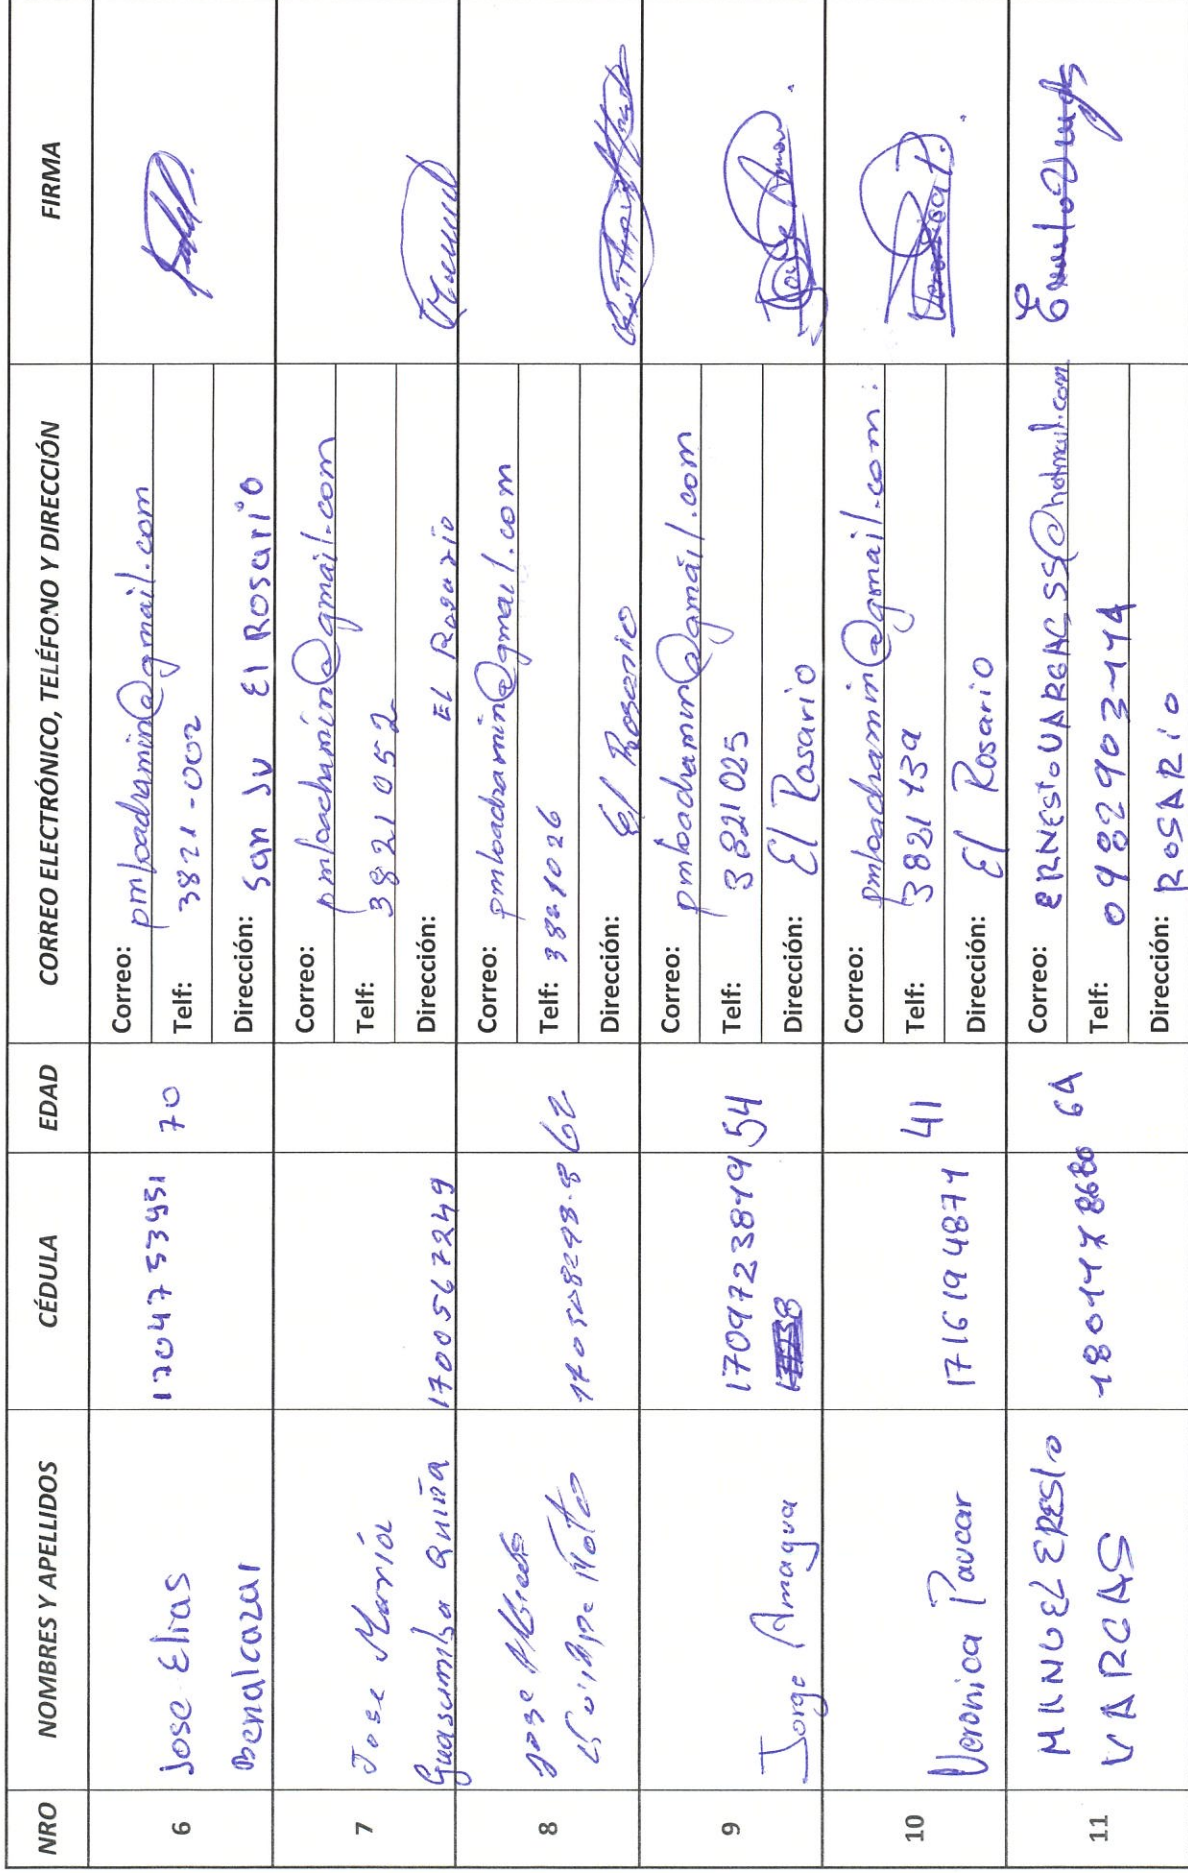 NRO NOMBRES Y APELLIDOS CÉDULA EDAD CORREO ELECTRÓNICO, TELÉFONO Y DIRECCIÓN FIRMA
6 Jose Elias Benalcazar 1704753451 70
Correo: pmloachamin@gmail.com
Telf: 3821-002
Dirección: San Jv El Rosario
7 Jose María Guasumba Quiña 1700567249
Correo: pmloachamin@gmail.com
Telf: 3821052
Dirección: EL Rosario
8 Jose 170508298-8 62
Correo: pmloachamin@gmail.com
Telf: 3821026
Dirección: El Rosario
9 Jorge Amagua 1709723819 54
Correo: pmloachamin@gmail.com
Telf: 3821025
Dirección: El Rosario
10 Veronica Paucar 1716194871 41
Correo: pmloachamin@gmail.com.
Telf: 3821439
Dirección: El Rosario
11 MANUEL ERESto VARGAS 64
Correo: ERNESTOVARGAS55@hotmail.com
Telf:
Dirección: ROSARIO